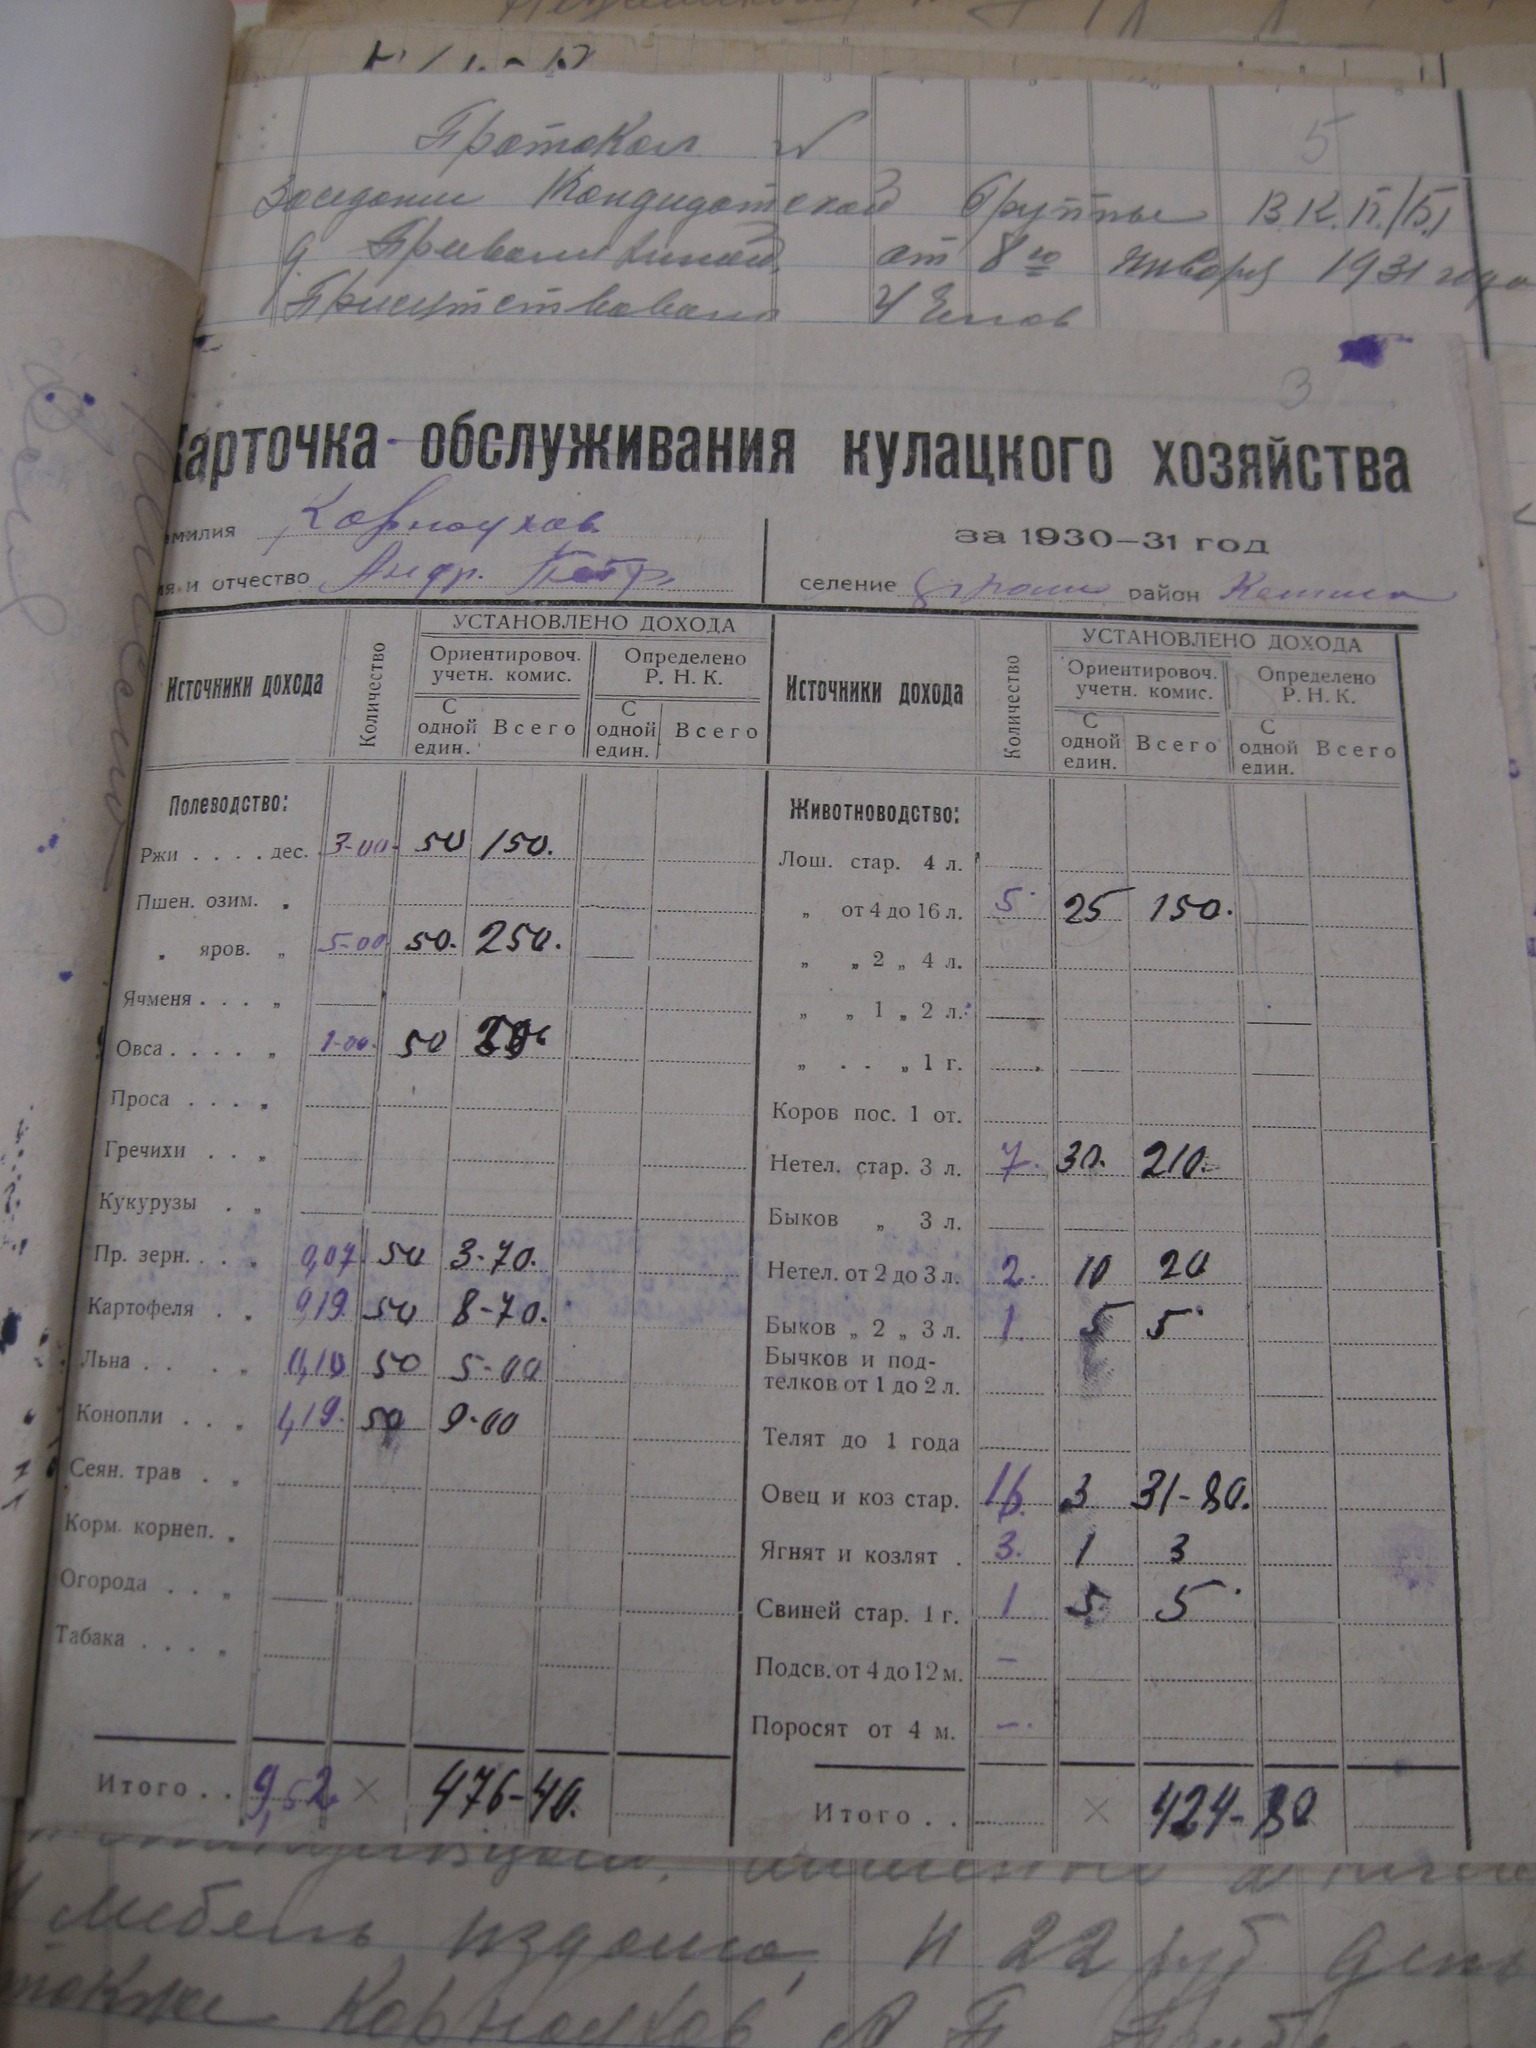 Протокол №
5
Заседания Кандидатской Группы В.К.П./Б./
от 8го января 1931 года
Присутствовало 4 Член
3
Карточка обслуживания кулацкого хозяйства
Фамилия Корноухов
за 1930–31 год
Имя и отчество Андр. Петр.
селение район
Источники дохода Количество УСТАНОВЛЕНО ДОХОДА Источники дохода Количество УСТАНОВЛЕНО ДОХОДА
Ориентировоч. учетн. комис. Определено Р. Н. К. Ориентировоч. учетн. комис. Определено Р. Н. К.
С одной един. Всего С одной един. Всего С одной един. Всего С одной един. Всего
Полеводство:
Ржи . . . . дес. 3-00. 50 150.
Пшен. озим. „
„ яров. „ 5-00 50. 250.
Ячменя . . . „
Овса . . . . „ 1-00. 50
Проса . . . „
Гречихи . . „
Кукурузы . „
Пр. зерн. . . „ 0,07 50 3-70.
Картофеля . „ 0,19 50 8-70.
Льна . . . „ 0,10 50 5-00
Конопли . . „ 50 9-00
Сеян. трав . „
Корм. корнеп. „
Огорода . . „
Табака . . . „
Итого . . 9,52 × 476-40.
Животноводство:
Лош. стар. 4 л.
„ от 4 до 16 л. 5 25 150.
„ „ 2 „ 4 л.
„ „ 1 „ 2 л.
„ . . „ 1 г.
Коров пос. 1 от.
Нетел. стар. 3 л. 7. 30. 210.
Быков „ 3 л.
Нетел. от 2 до 3 л. 2. 10 20
Быков „ 2 „ 3 л. 1. 5 5
Бычков и под-
телков от 1 до 2 л.
Телят до 1 года
Овец и коз стар. 16. 3 31-80.
Ягнят и козлят . 3. 1 3
Свиней стар. 1 г. 1 5. 5
Подсв. от 4 до 12 м. –
Поросят от 4 м. –
Итого . . × 424-80
мебель издано, и 22 руб ден
также Корноухов А П